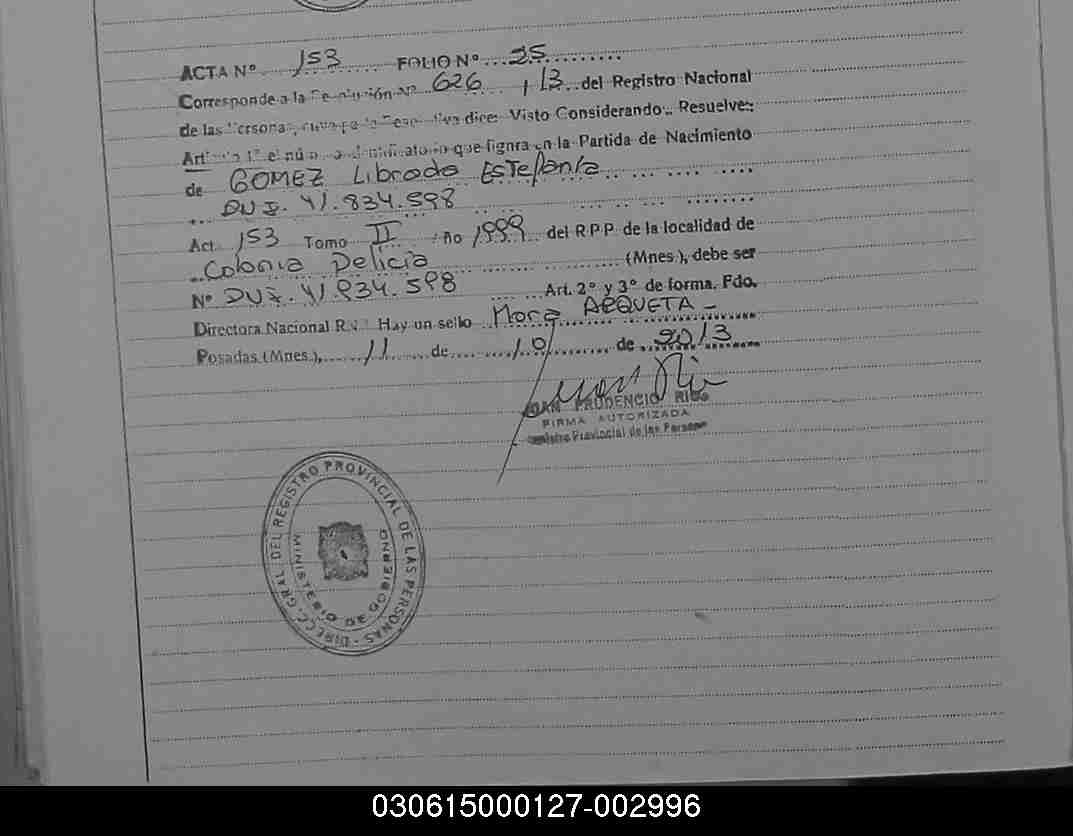 ACTA Nº 153 FOLIO Nº 25
Corresponde a la Resolución Nº 626 / 13 del Registro Nacional
de las Personas, cuya parte Resolutiva dice: Visto Considerando.. Resuelve:
Artículo 1º el número identificatorio que figura en la Partida de Nacimiento
de GOMEZ Librada Estefania
DU I. 41.834.598
Act. 153 Tomo II Año 1999 del R.P.P. de la localidad de
Colonia Delicia (Mnes.), debe ser
Nº DU I. 41.934.598 Art. 2º y 3º de forma. Fdo.
Directora Nacional R.N.P. Hay un sello Mora ARQUETA -
Posadas (Mnes.), 11 de 10 de 2013
JUAN PRUDENCIO RIOS
FIRMA AUTORIZADA
Registro Provincial de las Personas
DIRECC. GRAL. DEL REGISTRO PROVINCIAL DE LAS PERSONAS -
MINISTERIO DE GOBIERNO
030615000127-002996